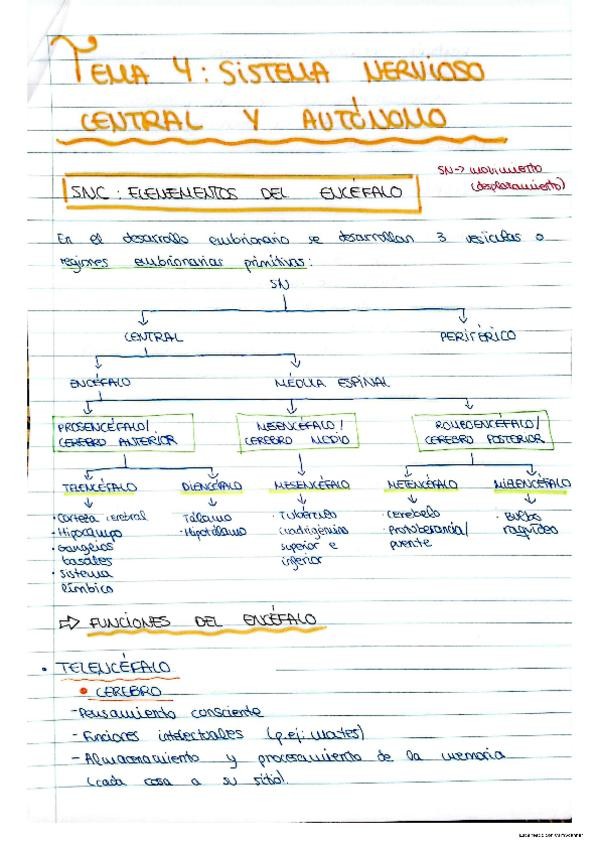 TEMA 4: SISTEMA NERVIOSO
CENTRAL Y AUTÓNOMO
SN → movimiento
(desplazamiento)
SNC: ELENEMENTOS DEL ENCÉFALO
En el desarrollo embrionario se desarrollan 3 vesículas o
regiones embrionarias primitivas:
SN
CENTRAL PERIFÉRICO
ENCÉFALO MÉDULA ESPINAL
PROSENCÉFALO/ MESENCÉFALO/ ROMBOENCÉFALO/
CEREBRO ANTERIOR CEREBRO MEDIO CEREBRO POSTERIOR
TELENCÉFALO DIENCÉFALO MESENCÉFALO METENCÉFALO MIELENCÉFALO
· Corteza cerebral · Tálamo · Tubérculo · Cerebelo · Bulbo
· Hipocampo · Hipotálamo cuadrigémino · Protuberancia/ raquídeo
· Ganglios superior e puente
basales inferior
· Sistema
límbico
⇒ FUNCIONES DEL ENCÉFALO
• TELENCÉFALO
• CEREBRO
- Pensamiento consciente
- Funciones intelectuales (p.ej: mates)
- Almacenamiento y procesamiento de la memoria
(cada cosa a su sitio).